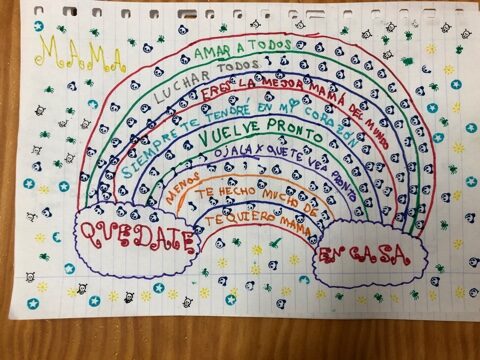 MAMA
AMAR A TODOS
LUCHAR TODOS
ERES LA MEJOR MAMÁ DEL MUNDO
SIEMPRE TE TENDRÉ EN MI CORAZÓN
VUELVE PRONTO
OJALA X QUE TE VEA PRONTO
MENOS
TE HECHO MUCHO DE
TE QUIERO MAMA
QUEDATE
EN CASA